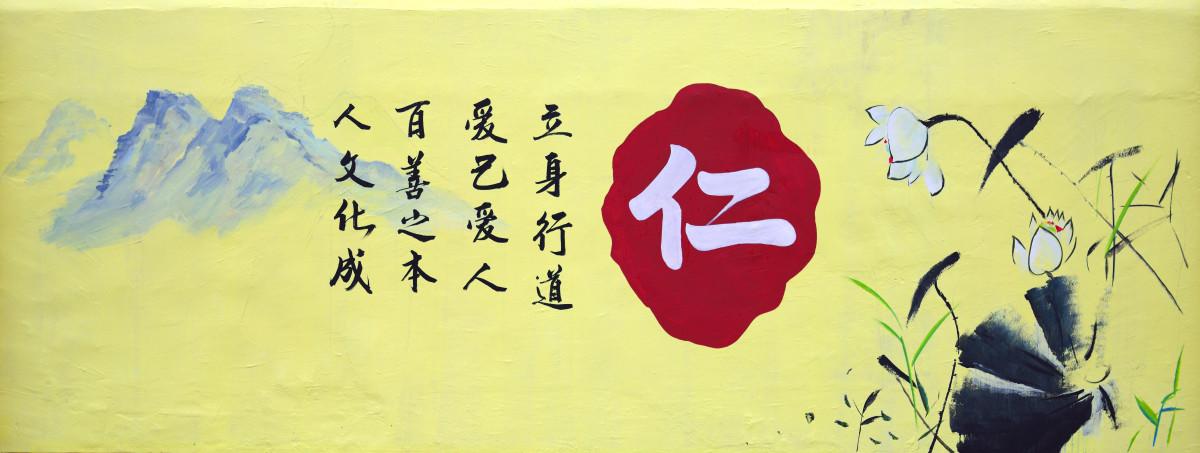 仁
立身行道
爱己爱人
百善之本
人文化成